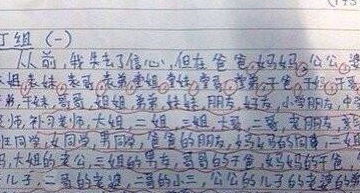 丁组（一）
从前，我失去了信心，但在爸爸，妈妈，公公，婆
姐，表妹，表哥，表弟，堂姐，堂妹，堂哥，堂弟，干爸，干妈，干
弟，干妹，哥哥，姐姐，弟弟，妹妹，朋友，好友，小学朋友，中
老师，补习老师，大姐，二姐，三姐，大哥，二哥，老朋友，
同学，女同学，男同学，爸爸的朋友，妈妈的同事，二
妈，大姐的老公，三姐的男友，哥哥的干爸，妈妈的干爸，
儿子，二哥的老婆，二哥的小三，公公的儿子的老婆的